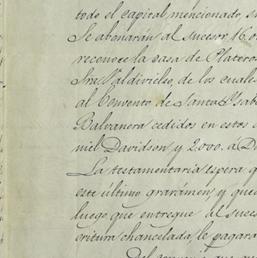 todo el capital mencionado, su
Se abonarán al sucesor 16.0
reconoce la casa de Plateros
Sra. Valdivielso, de los cuales
al Convento de Santa Ysabe
Balvanera cedidos en estos
mil Davidson y 2000. a D
La testamentaria espera q
este último gravámen, y que
luego que entregue al suces
critura chancelada, le pagará